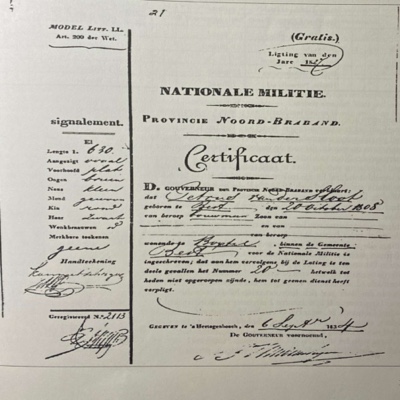 21
MODEL LITT. LL.
Art. 200 der Wet.
(Gratis.)
Ligting van den
Jare 18
NATIONALE MILITIE.
PROVINCIE NOORD-BRABAND.
Certificaat.
signalement.
El
Lengte 1. 630.
Aangezigt ovaal
Voorhoofd plat
Oogen
Neus klein
Mond gewoon
Kin rond
Haar Zwart
Wenkbraauwen
Merkbare teekenen
geene
Handteekening
Geregistreerd No. 2113
DE GOUVERNEUR der PROVINCIE NOORD-BRABAND
dat
geboren te Best, den 20 October 1808
van beroep bouwman Zoon van
en van
van beroep
wonende te binnen de Gemeente
Best voor de Nationale Militie is
ingeschreven; dat aan hem vervolgens bij de Loting is ten
deele gevallen het Nummer 20 hetwelk tot
heden niet opgeroepen zijnde, hem tot geenen dienst heeft
verpligt.
GEGEVEN te 's Hertogenbosch, den 6 Septr 1834
DE GOUVERNEUR voornoemd,